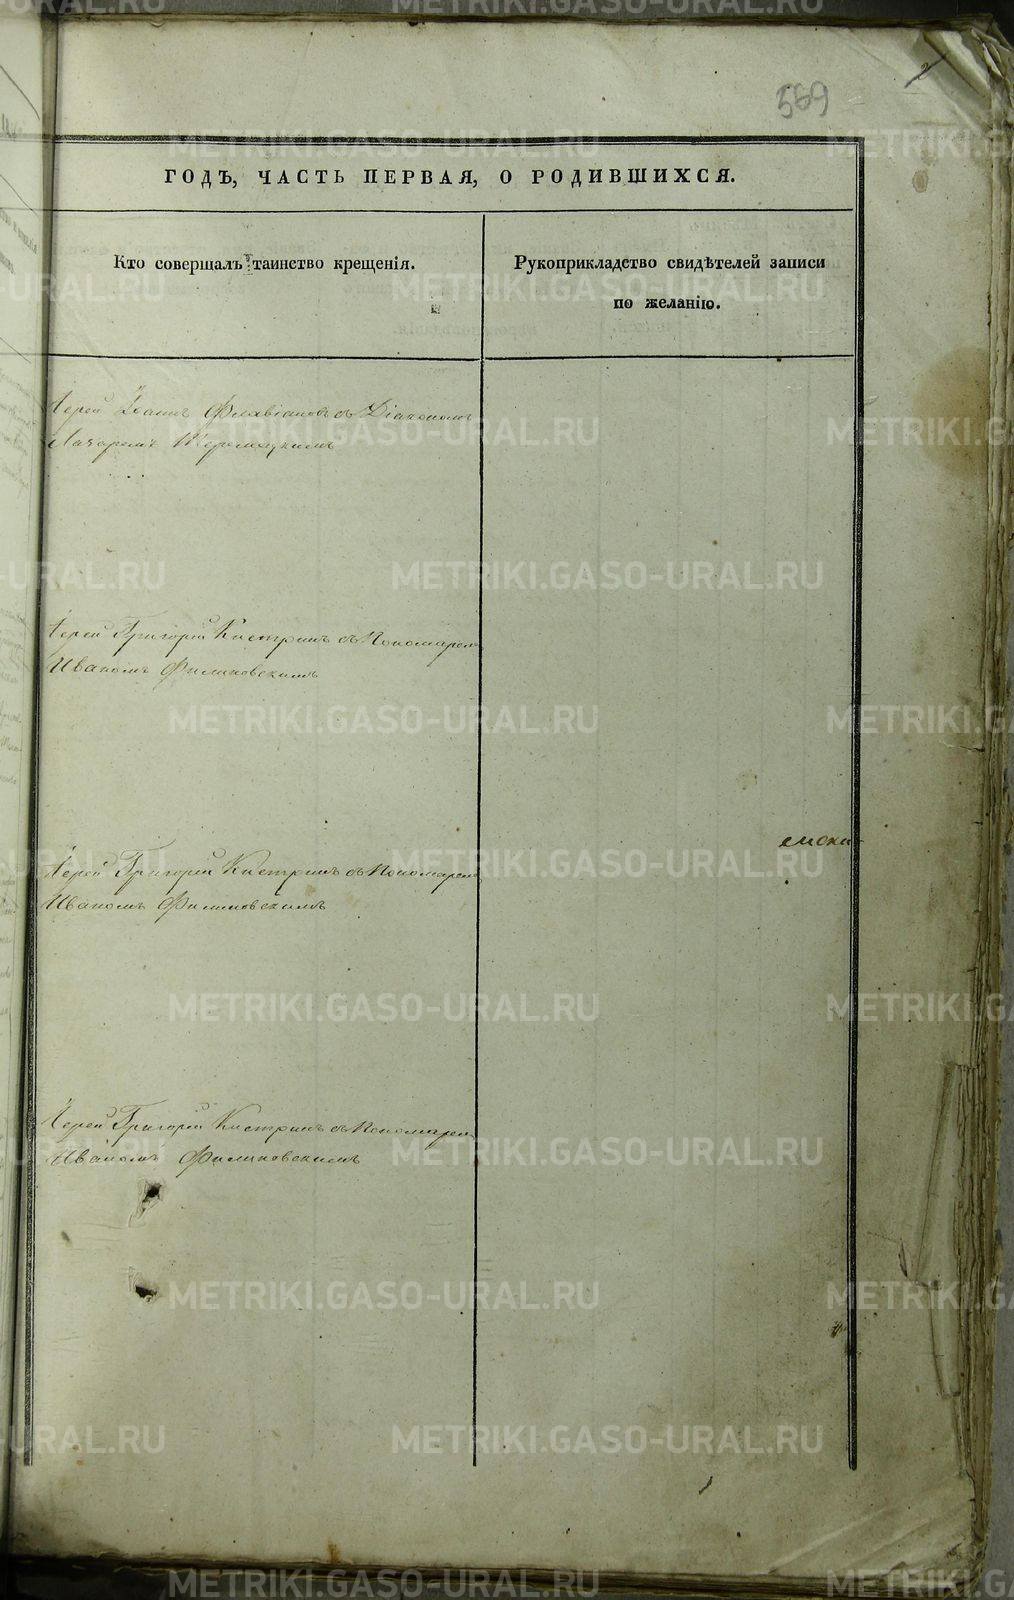 569
2
ГОДЪ, ЧАСТЬ ПЕРВАЯ, О РОДИВШИХСЯ.
Кто совершалъ таинство крещенія.
Рукоприкладство свидѣтелей записи
по желанію.
Іерей Іоаннъ Флавіановъ съ Діакономъ
Лазаремъ
Іерей Григорій Кистринъ съ Пономаремъ
Иваномъ Филиповскимъ
Іерей Григорій Кистринъ съ Пономаремъ
Иваномъ Филиповскимъ
Іерей Григорій Кистринъ съ Пономаремъ
Иваномъ Филиповскимъ
METRIKI.GASO-URAL.RU